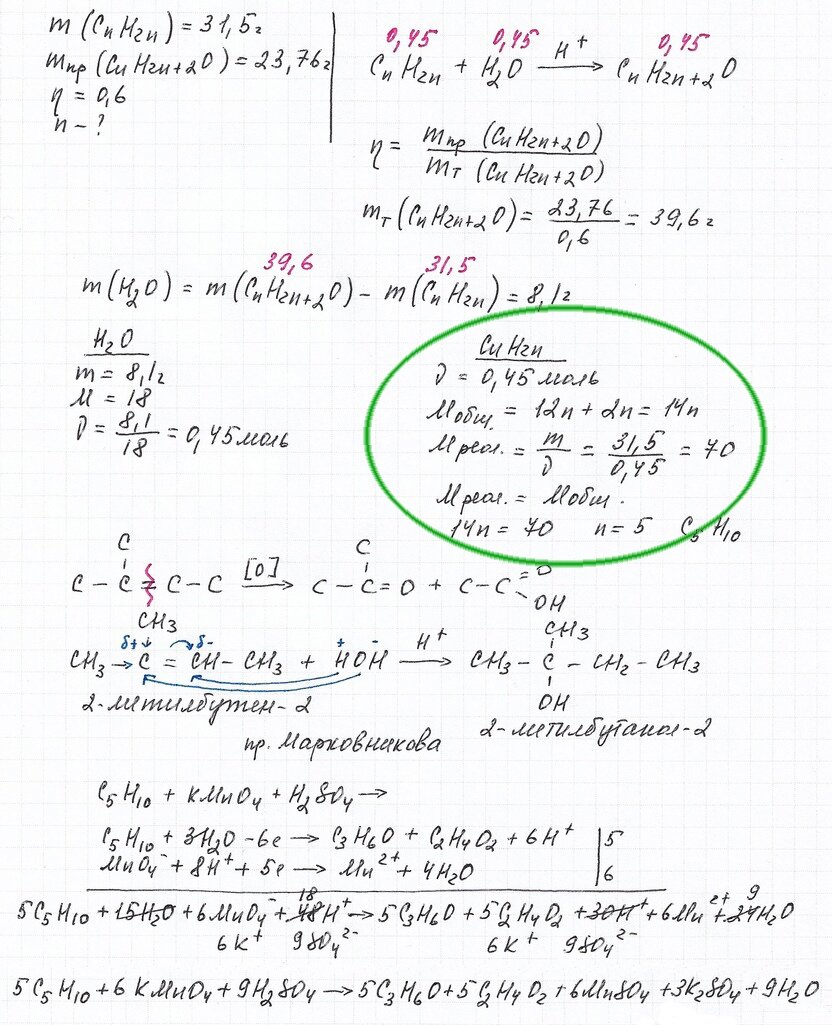 m (CnH2n) = 31,5г
mпр (CnH2n+2O) = 23,76г
η = 0,6
n - ?
0,45 0,45 0,45
CnH2n + H2O —H+→ CnH2n+2O
η = mпр (CnH2n+2O) / mт (CnH2n+2O)
mт (CnH2n+2O) = 23,76 / 0,6 = 39,6г
39,6 31,5
m (H2O) = m(CnH2n+2O) - m(CnH2n) = 8,1г
H2O
m = 8,1г
M = 18
ν = 8,1 / 18 = 0,45 моль
CnH2n
ν = 0,45 моль
Mобщ. = 12n + 2n = 14n
Mреал. = m / ν = 31,5 / 0,45 = 70
Mреал. = Mобщ.
14n = 70 n = 5 C5H10
C C
C - C = C - C —[O]→ C - C = O + C - C =O OH
CH3 CH3
δ+ δ- + -
CH3 → C = CH - CH3 + HOH —H+→ CH3 - C - CH2 - CH3
OH
2-метилбутен-2
2-метилбутанол-2
пр. Марковникова
C5H10 + KMnO4 + H2SO4 →
C5H10 + 3H2O - 6e → C3H6O + C2H4O2 + 6H+ | 5
MnO4- + 8H+ + 5e → Mn2+ + 4H2O | 6
18 9
5C5H10 + 15H2O + 6MnO4- + 48H+ → 5C3H6O + 5C2H4O2 + 30H+ + 6Mn2+ + 24H2O
6K+ 9SO4 2- 6K+ 9SO4 2-
5C5H10 + 6KMnO4 + 9H2SO4 → 5C3H6O + 5C2H4O2 + 6MnSO4 + 3K2SO4 + 9H2O